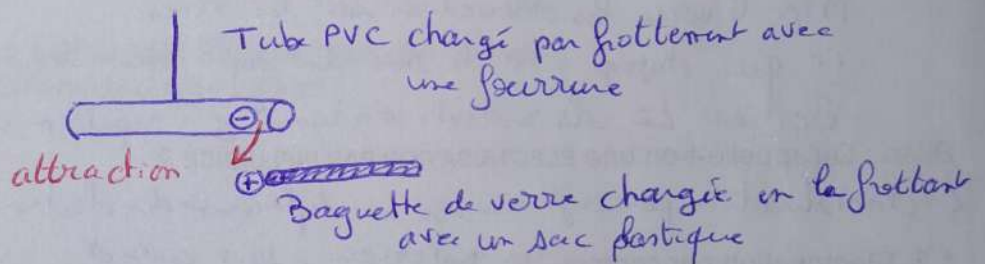 Tube PVC chargé par frottement avec
une fourrure
⊖
attraction
⊕
Baguette de verre chargée en la frottant
avec un sac plastique